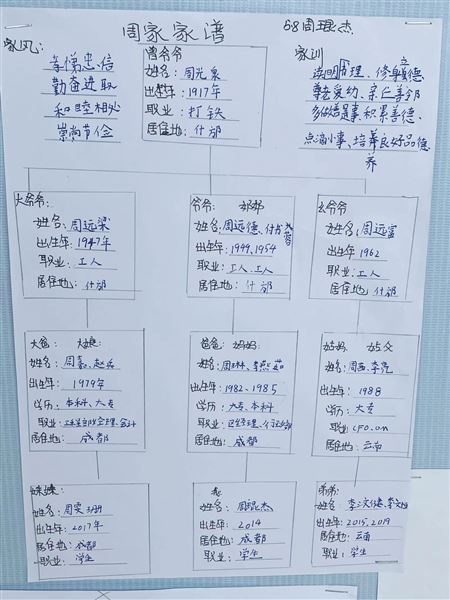 周家家谱
68周琨杰
家风:
孝悌忠信
勤奋进取
和睦相处
崇尚节俭
家训
读明理、修立德
尊老爱幼、亲仁善邻
多做善事积累善德、
点滴小事、培养良好品德
曾爷爷
姓名:周光泉
出生年:1917年
职业:打铁
居住地:什邡
大爷爷:
姓名:周远梁
出生年:1947年
职业:工人
居住地:什邡
爷爷: 奶奶
姓名:周远德、付芙蓉
出生年:1949、1954
职业:工人、工人
居住地:什邡
幺爷爷
姓名:周远富
出生年:1962
职业:工人
居住地:什邡
大爸: 大娘:
姓名:周
出生年:1979年
学历:本科、大专
职业:会计
居住地:成都
爸爸: 妈妈:
姓名:周
出生年:1982、1985
学历:大专、本科
职业:
居住地:成都
姑妈: 姑父
姓名:周
出生年:1988
学历:大专
职业:
居住地:云南
妹妹:
姓名:周奕玥
出生年:2017年
居住地:成都
职业:学生
我
姓名:周琨杰
出生年:2014
居住地:成都
职业:学生
弟弟:
姓名:李
出生年:2015、2019
居住地:云南
职业:学生